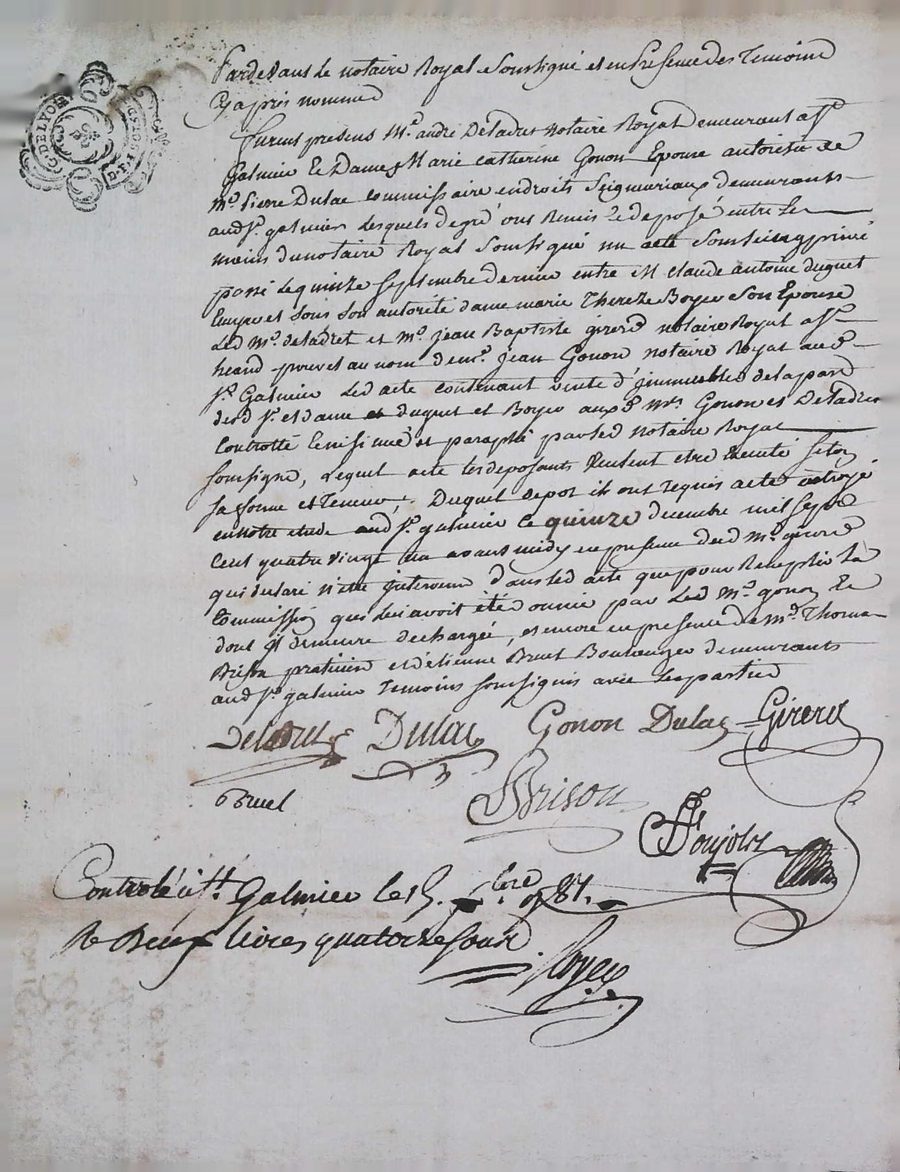 G. DE LYON
Pardevant le notaire Royal Soussigné et en presence des Temoins
Cy après nommés
furent presens Me. andré Deladret notaire Royal demeurant a St.
Galmier Et Dame Marie Catherine Gonon Epouse autorisée de
Me. Pierre Dulac Commissaire en droits Seigneuriaux demeurants
aud St. galmier Lesquels de gré ont Remis Et deposé entre les
mains du notaire Royal Soussigné un acte Sous seing privé
passé Le quinze septembre dernier entre Claude antoine duguet
et sous son autorité dame marie Thereze Boyer Son Epouse
Led Me. deladret et Me. jean Baptiste girerd notaire Royal a St.
heand au nom de me. jean Gonon notaire Royal aud
St. Galmier Led acte contenant vente d'immeubles de la part
desd Sr. et dame duguet et Boyer auxd Mes. Gonon et Deladret
Controllé insinué et paraphé par led notaire Royal
soussigné, Lequel acte les deposants Veulent etre Executé selon
sa forme et teneur, Duquel depot ils ont requis acte octroyé
en notre etude aud St. galmier Le quinze decembre mil sept
Cent quatre vingt un avant midy en presence dud me. girerd
qui declare n'etre intervenu dans led acte que pour Remplir La
Commission qui Luy avoit été donnée par Led Me. gonon Et
dont il demeure dechargé, et encore en presence de Me. Thomas
Brison praticien et d'étienne Bruel Boulanger demeurants
aud St. galmier Temoins soussignés avec les parties
Deladret Dulac Gonon Dulac Girerd
Bruel Brison
Poujols
Controlé à St. Galmier le 15. xbre 1781.
R Deux livres quatorze sous
Royer